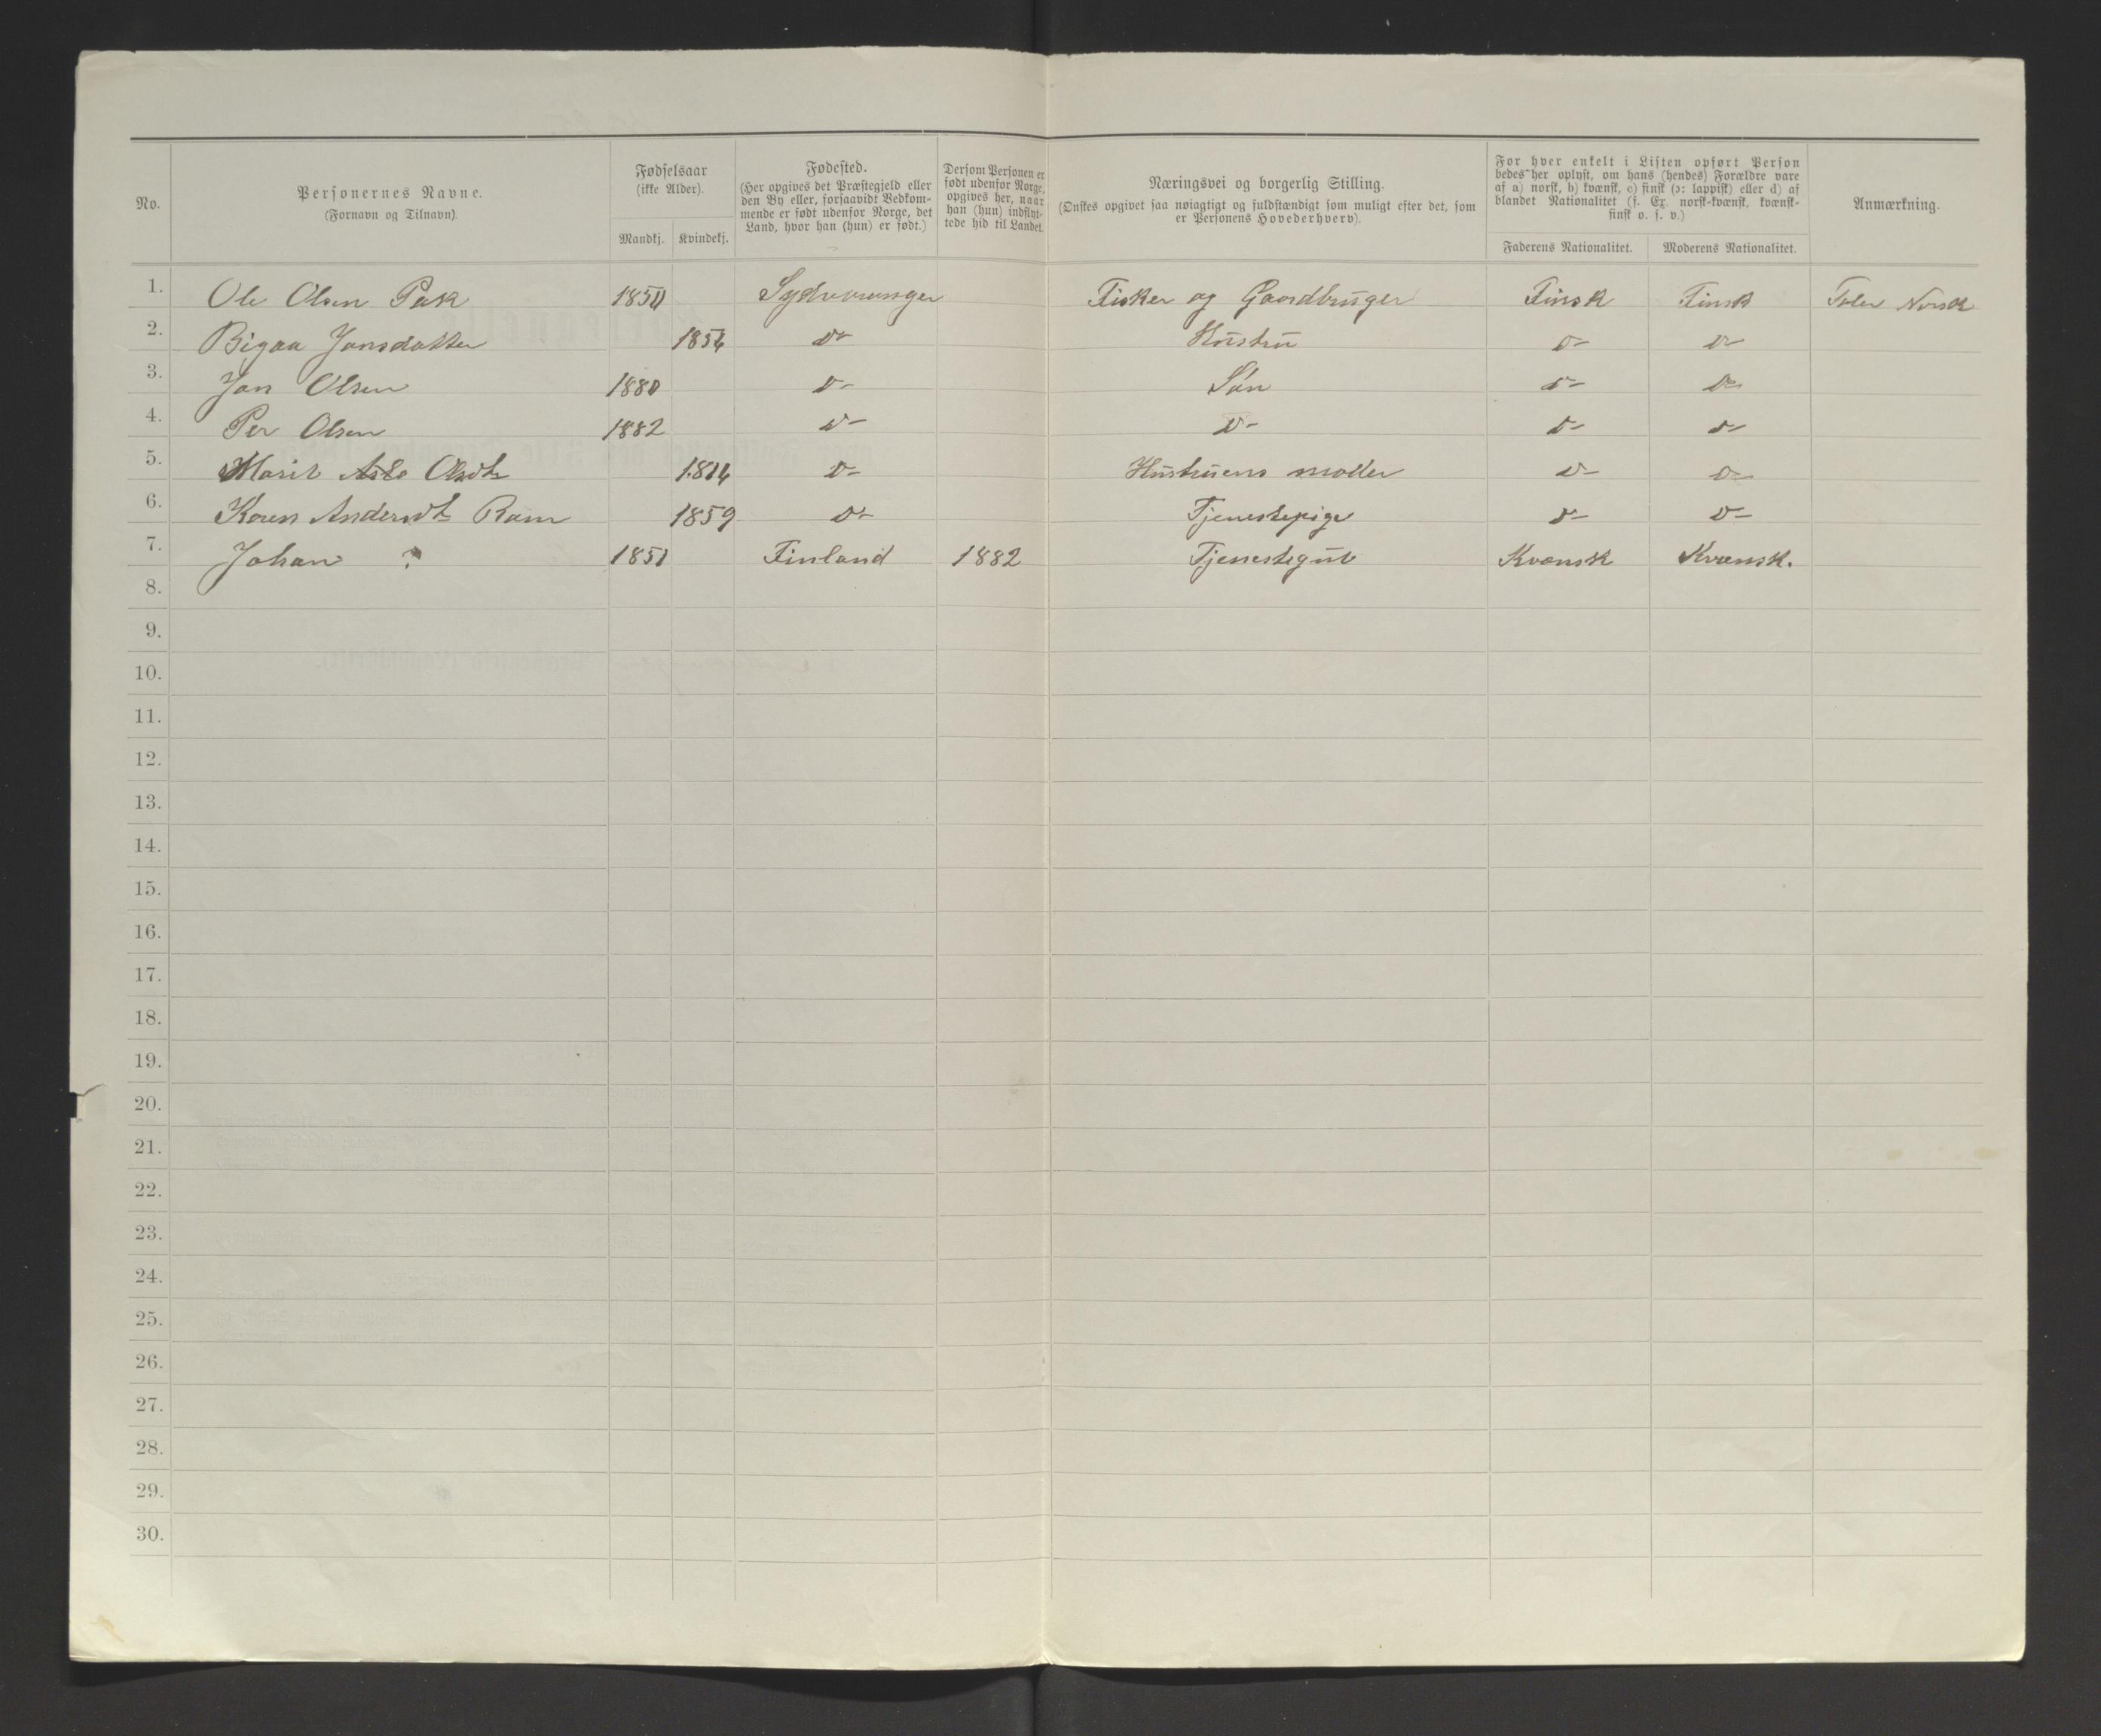 No.
Personernes Navne.
(Fornavn og Tilnavn).
Fødselsaar
(ikke Alder).
Mandkj. Kvindekj.
Fødested.
(Her opgives det Præstegjeld eller
den By eller, forsaavidt Vedkom-
mende er født udenfor Norge, det
Land, hvor han (hun) er født.)
Dersom Personen er
født udenfor Norge,
opgives her, naar
han (hun) indflyt-
tede hid til Landet.
Næringsvei og borgerlig Stilling.
(Ønskes opgivet saa nøiagtigt og fuldstændigt som muligt efter det, som
er Personens Hovederhverv).
For hver enkelt i Listen opført Person
bedes her oplyst, om hans (hendes) Forældre vare
af a) norsk, b) kvænsk, c) finsk (ɔ: lappisk) eller d) af
blandet Nationalitet (f. Ex. norsk-kvænsk, kvænsk-
finsk o. s. v.)
Faderens Nationalitet. Moderens Nationalitet.
Anmærkning.
1. Ole Olsen Pask 1850 Sydvaranger Fisker og Gaardbruger Finsk Finsk Taler Norsk
2. Bigaa Jonsdatter 1854 D- Hustru D- D-
3. Jon Olsen 1880 D- Søn D- D-
4. Per Olsen 1882 D- D- D- D-
5. Marit Olsdtr 1814 D- Hustruens moder D- D-
6. Karen Andersdtr Ram 1859 D- Tjenestepige D- D-
7. Johan ? 1851 Finland 1882 Tjenestegut Kvænsk Kvænsk.
8.
9.
10.
11.
12.
13.
14.
15.
16.
17.
18.
19.
20.
21.
22.
23.
24.
25.
26.
27.
28.
29.
30.